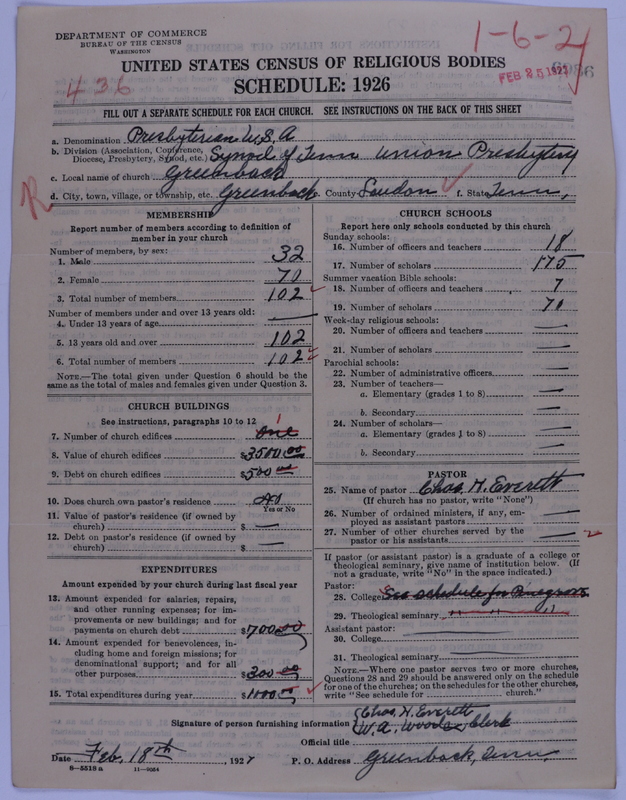 DEPARTMENT OF COMMERCE
BUREAU OF THE CENSUS
WASHINGTON
1-6-2
436
FEB 25 1927
6986
UNITED STATES CENSUS OF RELIGIOUS BODIES
SCHEDULE: 1926
FILL OUT A SEPARATE SCHEDULE FOR EACH CHURCH. SEE INSTRUCTIONS ON THE BACK OF THIS SHEET
a. Denomination Presbyterian U.S.A
b. Division (Association, Conference, Diocese, Presbytery, Synod, etc.) Synod of Tenn Union Presbytery
c. Local name of church Greenback
R
d. City, town, village, or township, etc. Greenback e. County Loudon f. State Tenn,
MEMBERSHIP
Report number of members according to definition of
member in your church
Number of members, by sex:
1. Male 32
2. Female 70
3. Total number of members 102
Number of members under and over 13 years old:
4. Under 13 years of age —
5. 13 years old and over 102
6. Total number of members 102
NOTE.—The total given under Question 6 should be the
same as the total of males and females given under Question 3.
CHURCH BUILDINGS
See instructions, paragraphs 10 to 12
7. Number of church edifices one 1
8. Value of church edifices $3500.00
9. Debt on church edifices $500.00
10. Does church own pastor's residence no
Yes or No
11. Value of pastor's residence (if owned by
church) $ —
12. Debt on pastor's residence (if owned by
church) $ —
EXPENDITURES
Amount expended by your church during last fiscal year
13. Amount expended for salaries, repairs,
and other running expenses; for im-
provements or new buildings; and for
payments on church debt $700.00
14. Amount expended for benevolences, in-
cluding home and foreign missions; for
denominational support; and for all
other purposes $300.00
15. Total expenditures during year $1000.00
CHURCH SCHOOLS
Report here only schools conducted by this church
Sunday schools:
16. Number of officers and teachers 18
17. Number of scholars 175
Summer vacation Bible schools:
18. Number of officers and teachers 7
19. Number of scholars 70
Week-day religious schools:
20. Number of officers and teachers —
21. Number of scholars —
Parochial schools:
22. Number of administrative officers —
23. Number of teachers—
a. Elementary (grades 1 to 8) —
b. Secondary —
24. Number of scholars—
a. Elementary (grades 1 to 8) —
b. Secondary —
PASTOR
25. Name of pastor Chas. H. Everett
(If church has no pastor, write "None")
26. Number of ordained ministers, if any, em-
ployed as assistant pastors —
27. Number of other churches served by the
pastor or his assistants — 2
If pastor (or assistant pastor) is a graduate of a college or
theological seminary, give name of institution below. (If
not a graduate, write "No" in the space indicated.)
Pastor:
28. College See schedule for
29. Theological seminary " " "
Assistant pastor:
30. College
31. Theological seminary
NOTE.—Where one pastor serves two or more churches,
Questions 28 and 29 should be answered only on the schedule
for one of the churches; on the schedules for the other churches,
write "See schedule for ______ church."
Chas. H. Everett
Signature of person furnishing information W. A. Woods, Clerk
Official title
Date Feb. 18th, 1927 P. O. Address Greenback, Tenn,
8—5518 a 11—9064